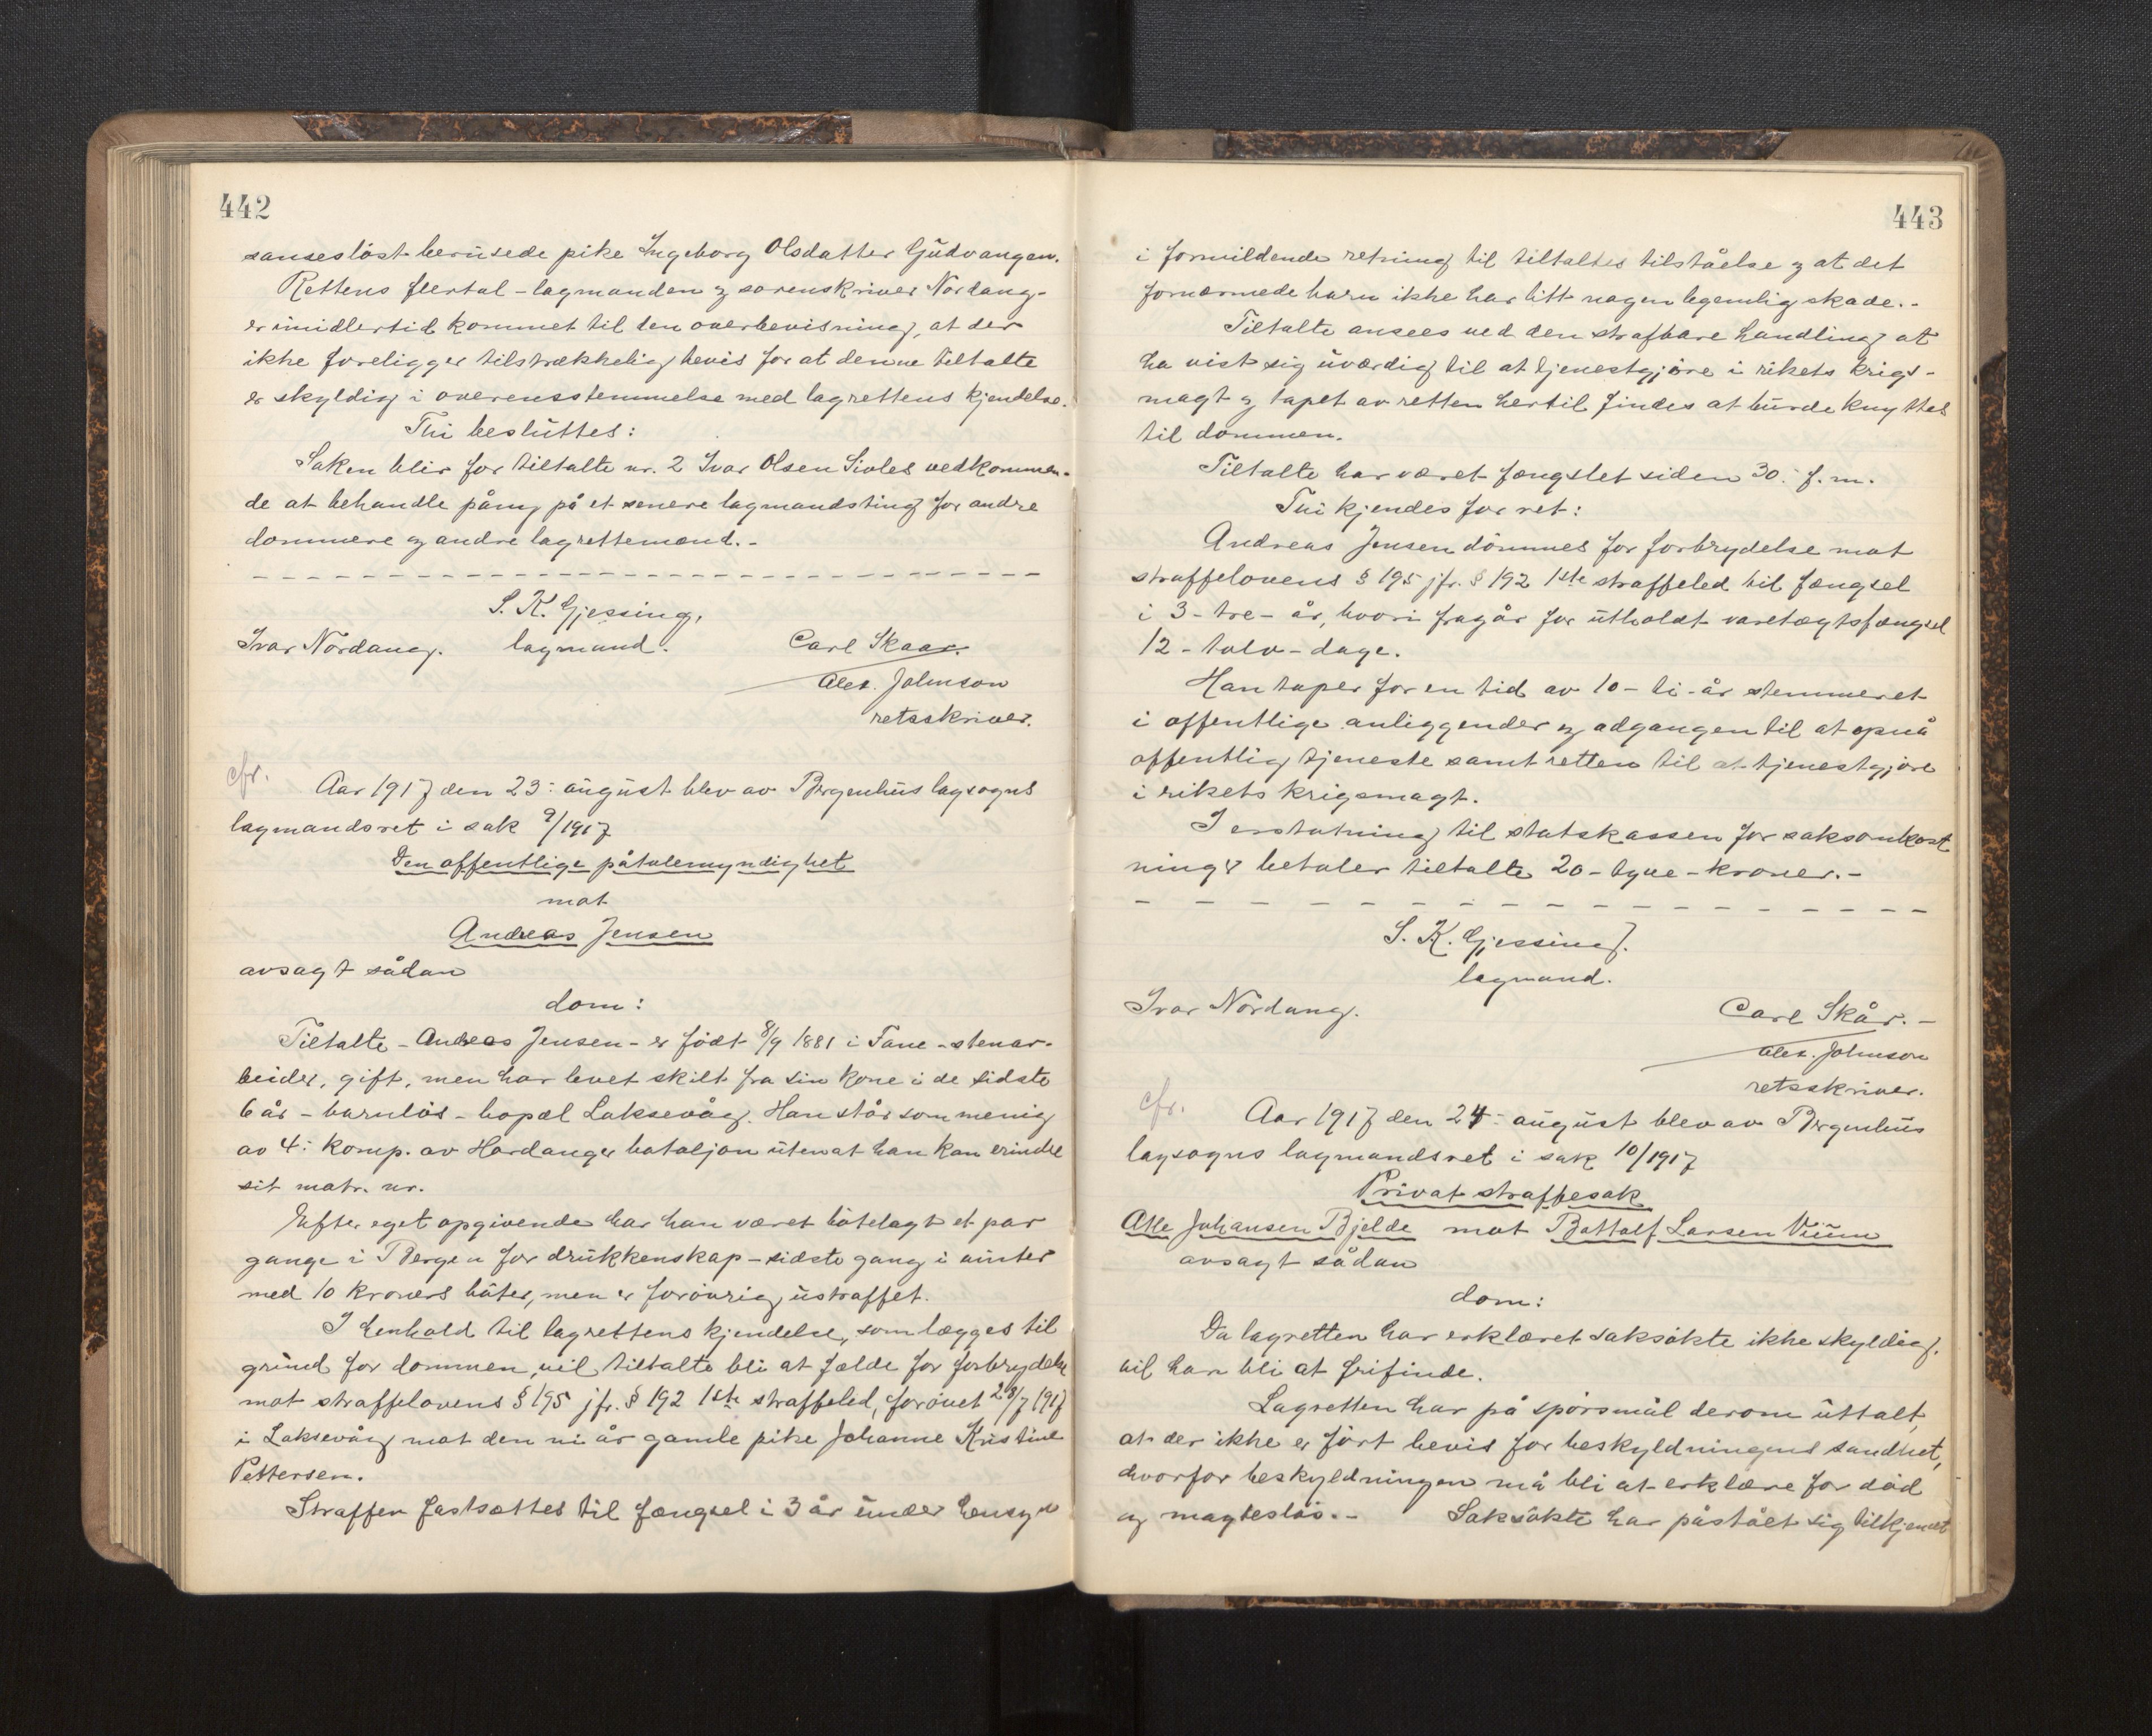 442
sanseslöst berusede pike Ingeborg Olsdatter Gudvangen.
Rettens flertal - lagmanden og sorenskriver Nordang -
er imidlertid kommet til den overbevisning, at der
ikke foreligger tilstrækkelig bevis for at denne tiltalte
er skyldig i overensstemmelse med lagrettens kjendelse.
Thi besluttes:
Saken blir for tiltalte nr. 2 Ivar Olsen Sivles vedkommen-
de at behandle påny på et senere lagmandsting for andre
dommere og andre lagrettemænd. -
S. K. Gjessing,
Ivar Nordang. lagmand. Carl Skaar.
Alex. Johnson
retsskriver.
cfr.
Aar 1917 den 23: august blev av Bergenhus lagsogns
lagmandsret i sak 9/1917
Den offentlige påtalemyndighet
mot
Andreas Jensen
avsagt sådan
dom:
Tiltalte - Andreas Jensen - er födt 8/9 1881 i Fane - stenar-
beider, gift, men har levet skilt fra sin kone i de sidste
6 år - barnlös - bopæl Laksevåg. Han står som menig
av 4: komp. av Hardanger bataljon uten at han kan erindre
sit matr. nr.
Efter eget opgivende har han været bötelagt et par
gange i Bergen for drukkenskap - sidste gang i vinter
med 10 kroners böter, men er forövrig ustraffet.
I henhold til lagrettens kjendelse, som lægges til
grund for dommen, vil tiltalte bli at fælde for forbrydelse
mot straffelovens § 195 jfr. § 192 1ste straffeled, forövet 28/7 1917
i Laksevåg mot den ni år gamle pike Johanne Kristine
Pettersen.
Straffen fastsættes til fængsel i 3 år under hensyn
443
i formildende retning til tiltaltes tilståelse og at det
fornærmede barn ikke har litt nogen legemlig skade. -
Tiltalte ansees ved den strafbare handling at
ha vist sig uværdig til at tjenestgjöre i rikets krigs-
magt og tapet av retten hertil findes at burde knyttes
til dommen.
Tiltalte har været fængslet siden 30: f. m.
Thi kjendes for ret:
Andreas Jensen dömmes for forbrydelse mot
straffelovens § 195 jfr. § 192 1ste straffeled til fængsel
i 3 - tre - år, hvori fragår for utholdt varetægtsfængsel
12 - tolv - dage.
Han taper for en tid av 10 - ti - år stemmeret
i offentlige anliggender og adgangen til at opnå
offentlig tjeneste samt retten til at tjenestgjöre
i rikets krigsmagt.
I erstatning til statskassen for saksomkost
ninger betaler tiltalte 20 - tyve - kroner. -
S. K. Gjessing.
lagmand.
Ivar Nordang. Carl Skår. -
Alex. Johnson
retsskriver.
cfr.
Aar 1917 den 24: august blev av Bergenhus
lagsogns lagmandsret i sak 10/1917
Privat straffesak
Atle Johansen Bjelde mot Bottolf Larsen Vium
avsagt sådan
dom:
Da lagretten har erklæret saksökte ikke skyldig,
vil han bli at frifinde.
Lagretten har på spörsmål derom uttalt,
at der ikke er fört bevis for beskyldningens sandhet,
hvorfor beskyldningen må bli at erklære for död
og magteslös. - Saksökte har påstået sig tilkjendt